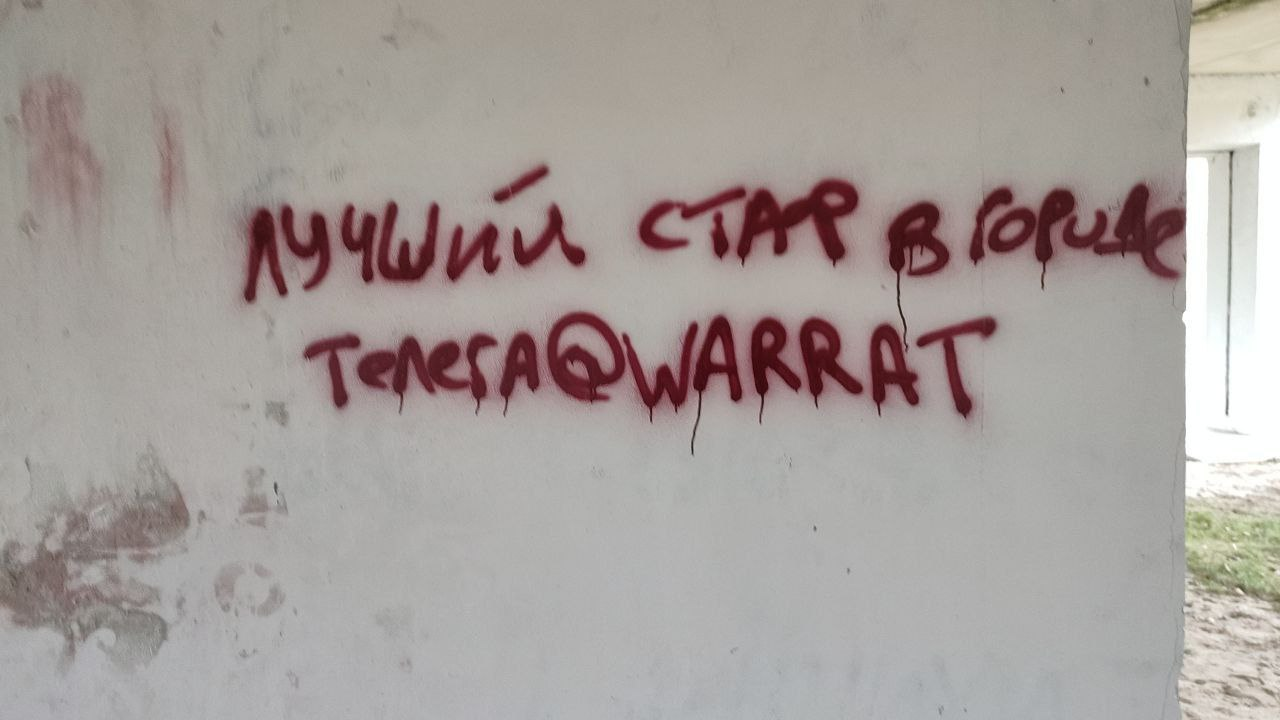 ЛУЧШИЙ СТАР В ГОРОДЕ
Телега@WARRAT